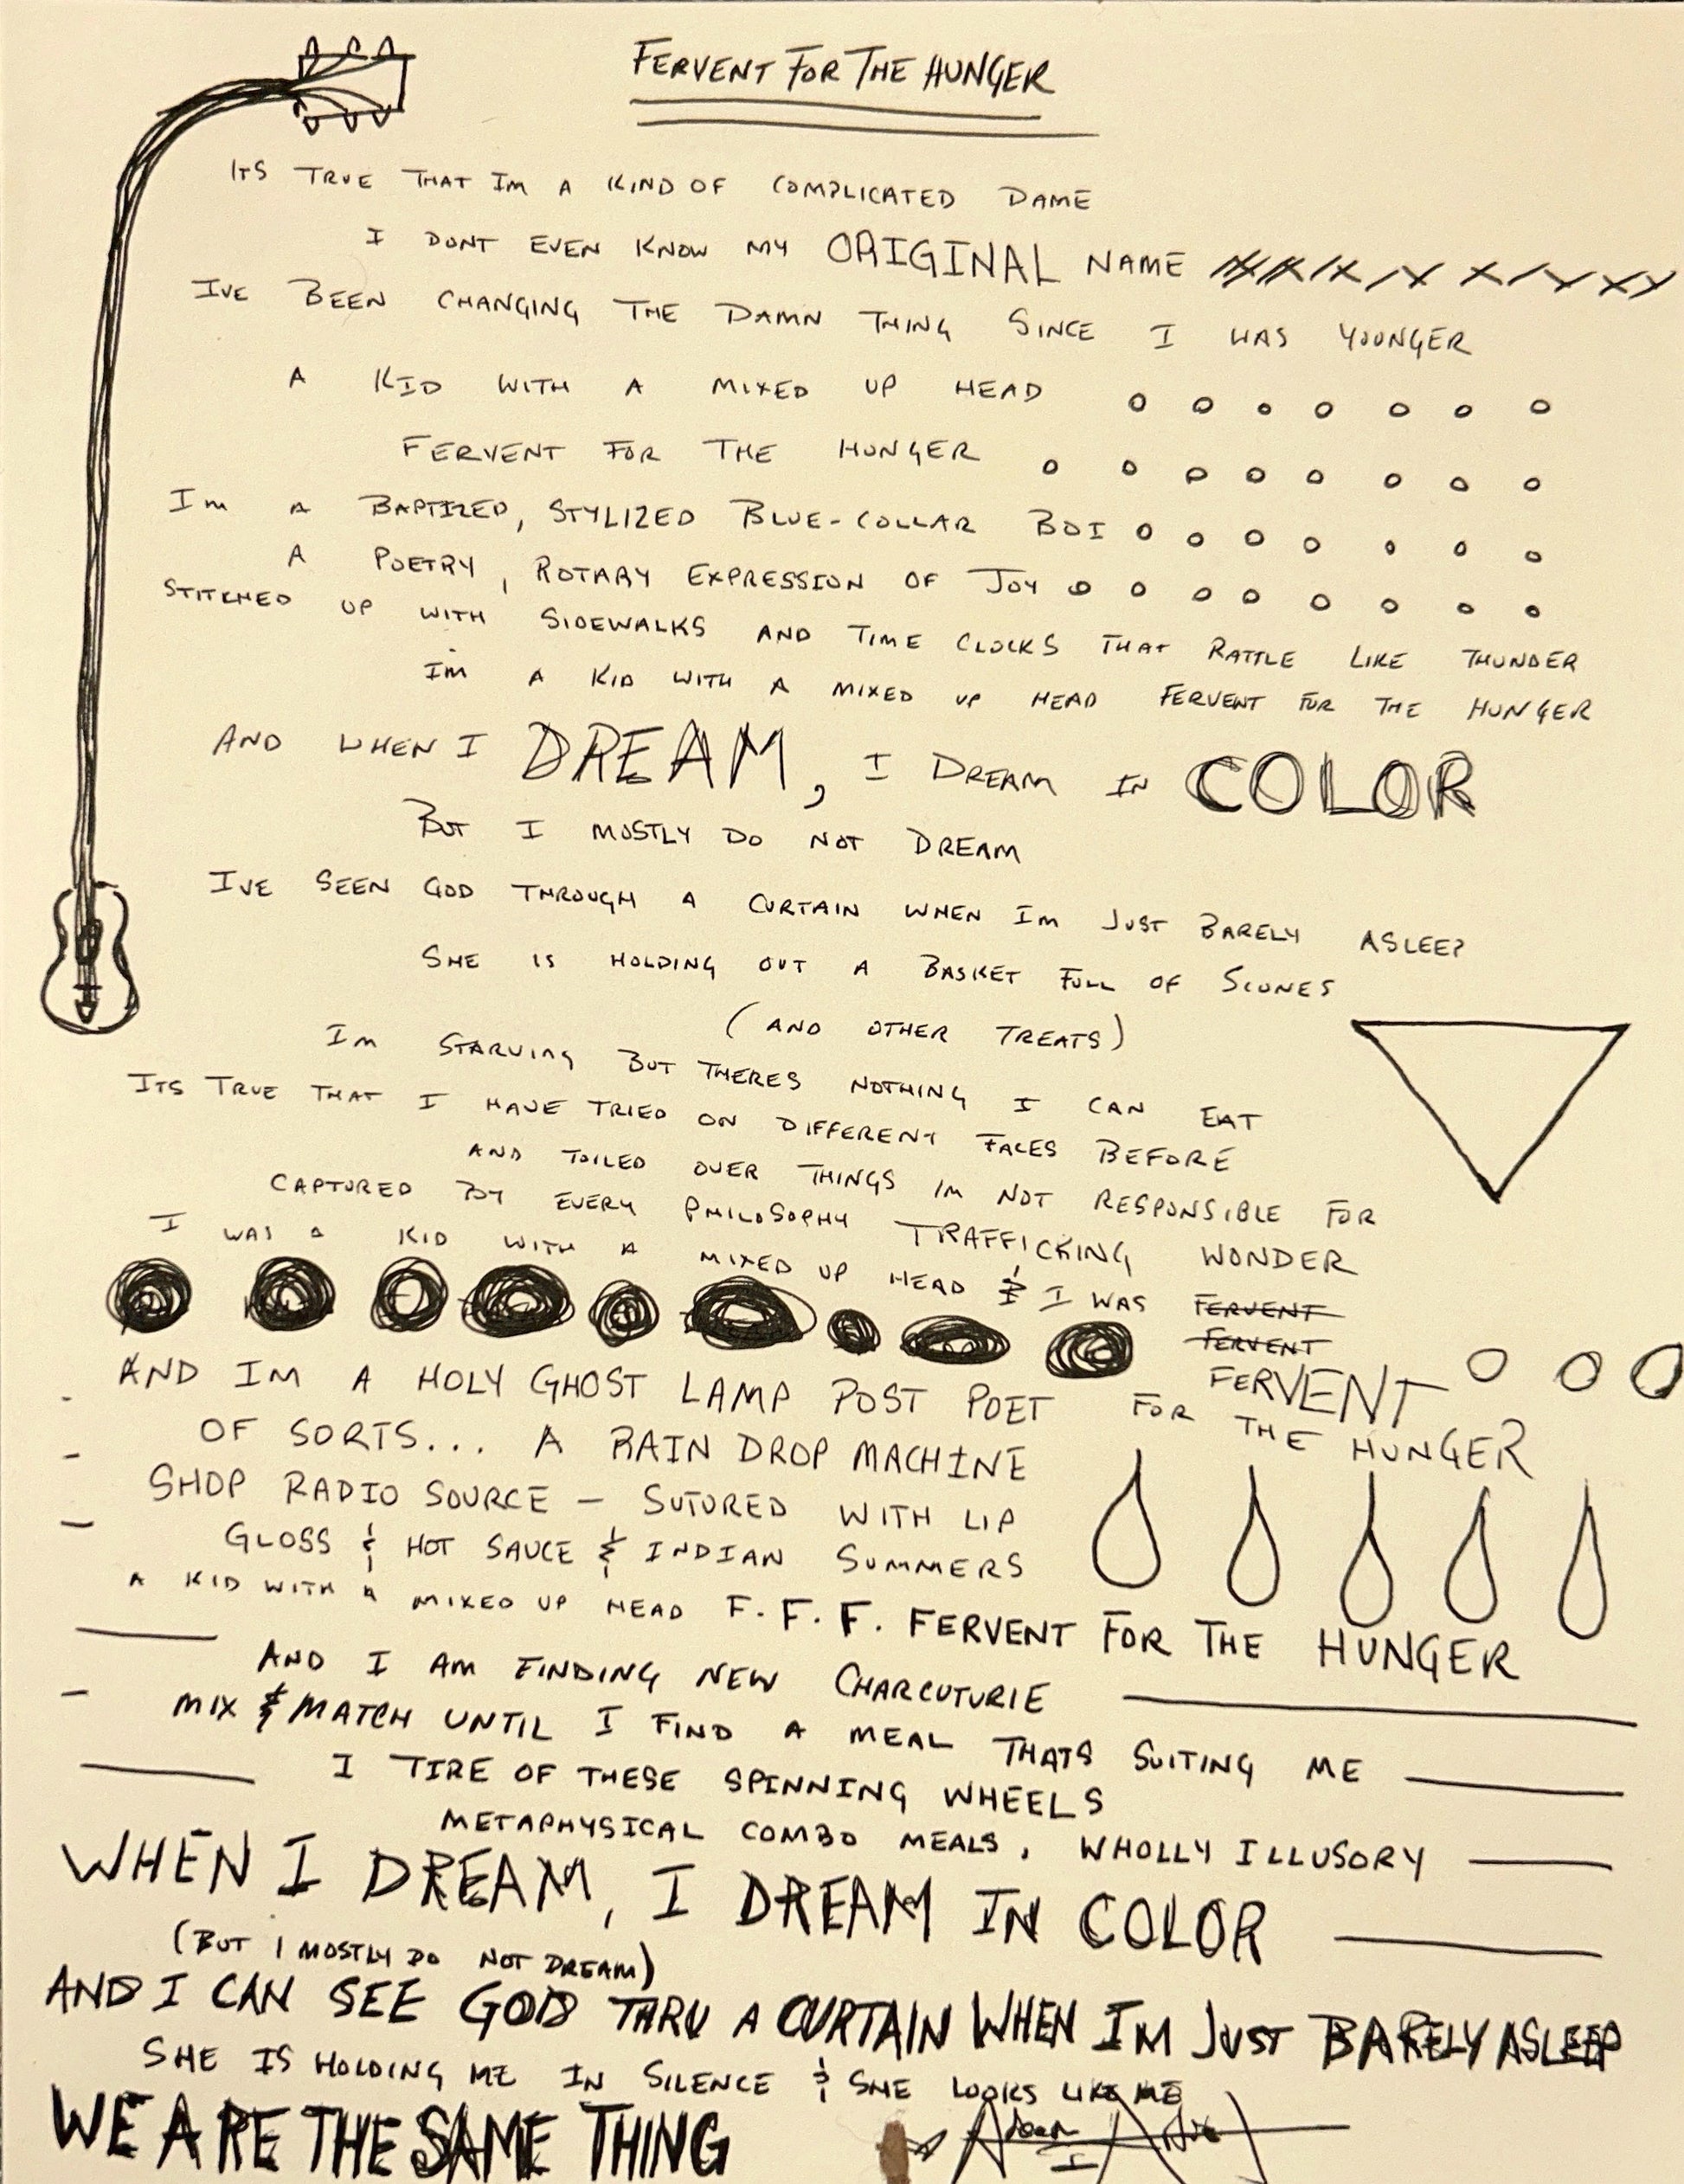 FERVENT FOR THE HUNGER
ITS TRUE THAT IM A KIND OF COMPLICATED DAME
I DONT EVEN KNOW MY ORIGINAL NAME
IVE BEEN CHANGING THE DAMN THING SINCE I WAS YOUNGER
A KID WITH A MIXED UP HEAD
FERVENT FOR THE HUNGER
IM A BAPTIZED, STYLIZED BLUE-COLLAR BOI
A POETRY, ROTARY EXPRESSION OF JOY
STITCHED UP WITH SIDEWALKS AND TIME CLOCKS THAT RATTLE LIKE THUNDER
IM A KID WITH A MIXED UP HEAD FERVENT FOR THE HUNGER
AND WHEN I DREAM, I DREAM IN COLOR
BUT I MOSTLY DO NOT DREAM
IVE SEEN GOD THROUGH A CURTAIN WHEN IM JUST BARELY ASLEEP
SHE IS HOLDING OUT A BASKET FULL OF SCONES
(AND OTHER TREATS)
IM STARVING BUT THERES NOTHING I CAN EAT
ITS TRUE THAT I HAVE TRIED ON DIFFERENT FACES BEFORE
AND TOILED OVER THINGS IM NOT RESPONSIBLE FOR
CAPTURED BY EVERY PHILOSOPHY TRAFFICKING WONDER
I WAS A KID WITH A MIXED UP HEAD & I WAS FERVENT
FERVENT
FERVENT
FOR THE HUNGER
AND IM A HOLY GHOST LAMP POST POET
OF SORTS... A RAIN DROP MACHINE
SHOP RADIO SOURCE – SUTURED WITH LIP
GLOSS & HOT SAUCE & INDIAN SUMMERS
A KID WITH A MIXED UP HEAD F. F. F. FERVENT FOR THE HUNGER
AND I AM FINDING NEW CHARCUTURIE
MIX & MATCH UNTIL I FIND A MEAL THATS SUITING ME
I TIRE OF THESE SPINNING WHEELS
METAPHYSICAL COMBO MEALS, WHOLLY ILLUSORY
WHEN I DREAM, I DREAM IN COLOR
(BUT I MOSTLY DO NOT DREAM)
AND I CAN SEE GOD THRU A CURTAIN WHEN IM JUST BARELY ASLEEP
SHE IS HOLDING ME IN SILENCE & SHE LOOKS LIKE ME
WE ARE THE SAME THING